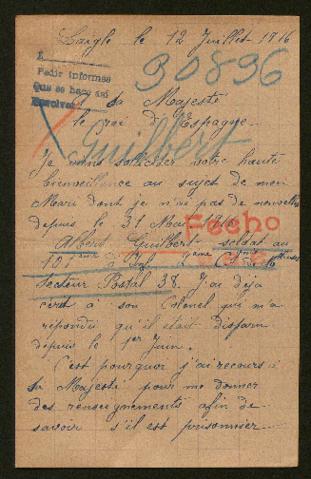 Laigle le 12 Juillet 1916
A
Pedir informes
Que se hace así
Devolver
30896
Sa Majesté
le roi d'Espagne
Guilbert
Je viens solliciter votre haute
bienveillance au sujet de mon
Mari dont je n'ai pas de nouvelles
depuis le 31 Mai 1916
Fecho
Albert Guilbert soldat au
101 eme d'Inf eme Cie
Secteur Postal 38. J'ai déja
écrit à son Colonel qui m'a
repondu qu'il était disparu
depuis le 1er Juin.
C'est pourquoi j'ai recours à
sa Majesté pour me donner
des renseignements afin de
savoir s'il est prisonnier